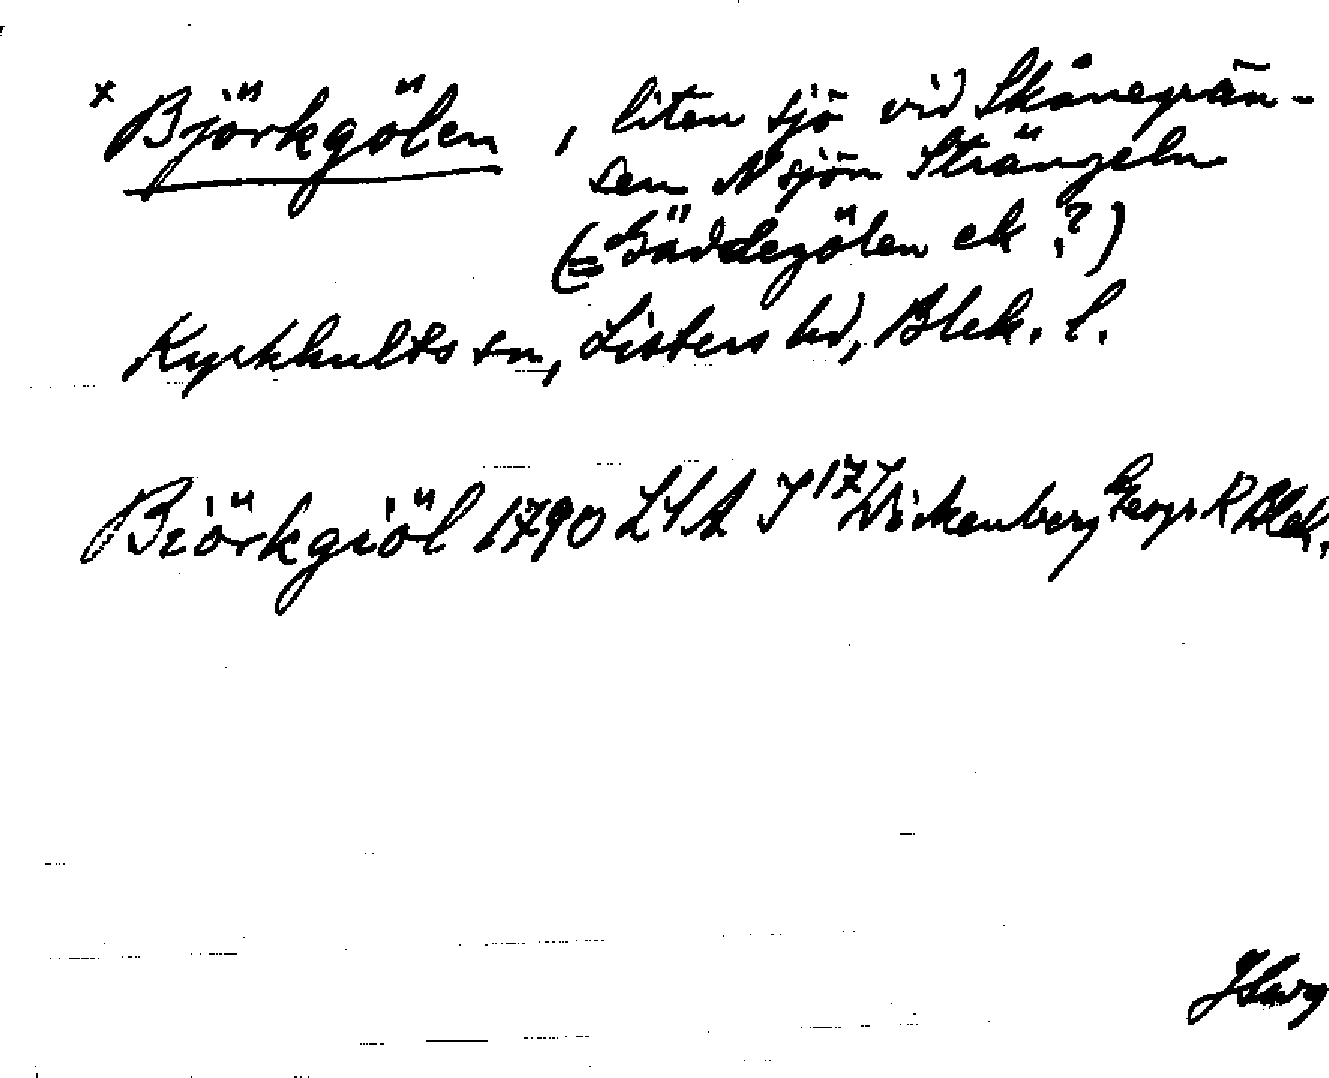 x Björkgölen, liten sjö vid Skånegrän-
sen N sjön Strängeln
(= Gäddegölen ek ?)
Kyrkhults sn, Listers hd, Blek. l.
Biörkgiöl 1790 LSA I 17 Wickenberg Geogr K Blek.